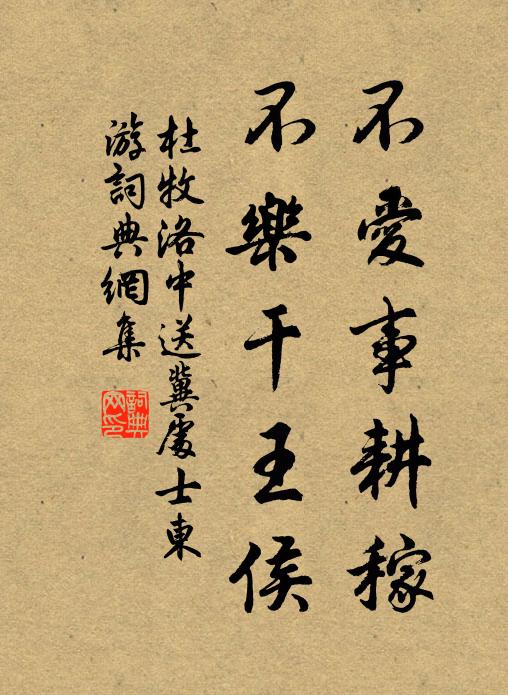 不愛事耕稼
不樂干王侯
杜牧洛中送冀處士東
游詞典網集
詞典
网印